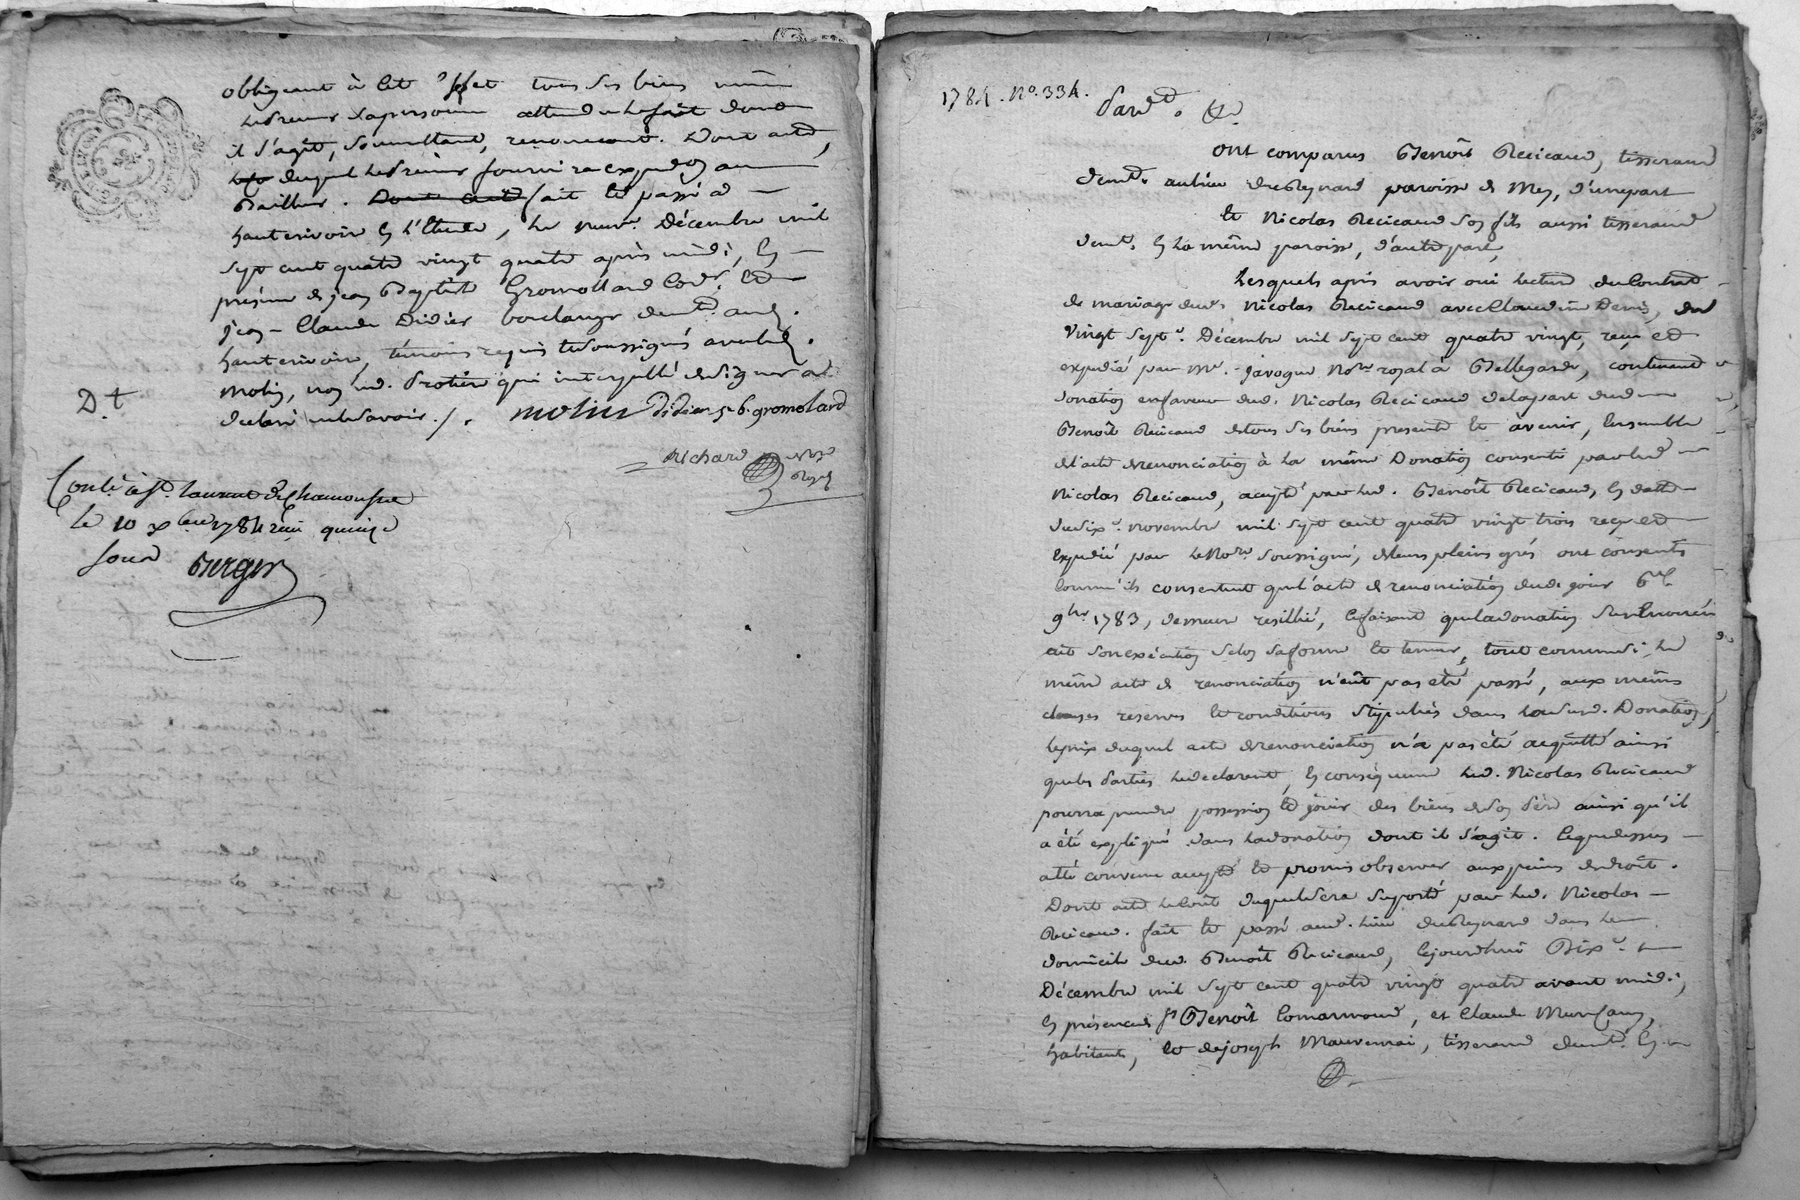 obligeant à cet effet tous ses biens même
ledreneur sa personne attendu le fait dont
il s'agit, soumettant, renonceant. Dont acte,
duquel ledreneur fournira expedon au
Bailleur. Dont acte fait et passé à
hauterivoire en l'Etude, le neuve. Décembre mil
sept cent quatre vingt quatre après midi, en
présence de jean Baptiste Gromollard Cordr. et de
jean-Claude Didier boulanger demt. aud.
hauterivoire, témoins requis et soussignés avec led.
Molin, non led. Protière qui interpellé de signer a
declaré ne le savoir./. molin Didier j. b. gromolard
D.t
richard no.re
Royal
Conlé. à st. laurent de Chamousset
le 10 xbre 1784 reçu quinze
sous Berger
1784. No. 334.
Pard.t &.
ont comparus Benoît Recicaud, tisserand
demt. au lieu du Reynard paroisse de Mey, d'une part
et Nicolas Recicaud son fils aussi tisserand
demt. en la même paroisse, d'autre part,
Lesquels après avoir oui lecture du Contrat
de mariage dud. Nicolas Recicaud avec Claudine Denis, du
vingt sept. Décembre mil sept cent quatre vingt, reçu et
expedié par me. javogue Nore. royal à Bellegarde, contenant
donation en faveur dud. Nicolas Recicaud de la part dud.
Benoît Recicaud de tous ses biens present et avenir, Ensemble
de l'acte de renonciation à la même Donation consenti par led.
Nicolas Recicaud, accepté par led. Benoît Recicaud, en datte
du six. novembre mil sept cent quatre vingt trois reçu et
Expedié par le Nore. soussigné, de leurs pleins grés ont consentis
comme ils consentent que l'acte de renonciation dud. jour 6e.
9bre 1783, demeure resillié, ce faisant que la donation susénoncée
ait son exécution selon sa forme et teneur, tout comme si le
même acte de renonciation n'eût pas été passé, aux mêmes
clauses reserves et conditions stipulées dans la susd. Donation,
le prix duquel acte de renonciation n'a pas été acquitté ainsi
que les Parties le declarent, en conséquence led. Nicolas Recicaud
pourra prendre possession et jouir des biens de son Père ainsi qu'il
a été expliqué dans la donation dont il s'agit. Ce que dessus
a été convenu accepté et promis observer aux peines de droit.
Dont acte le coût duquel sera suporté par led. Nicolas
Recicaud. fait et passé aud. lieu du Reynard dans le
domicile dud. Benoît Recicaud, Cejourdhui Dix.
Décembre mil sept cent quatre vingt quatre avant midi,
En présence de sr Benoît Comarmond, et Claude
habitants, et de joseph tisserand demt. En